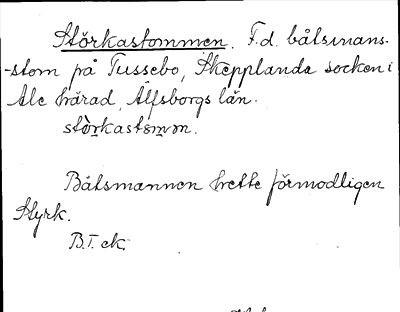 Störkastommen. F.d. båtsmans-
-stom på Tussebo, Skepplanda socken i
Ale härad, Älfsborgs län.
störkastǝmǝn.
Båtsmannen hette förmodligen
Styrk.
B.T. ek.